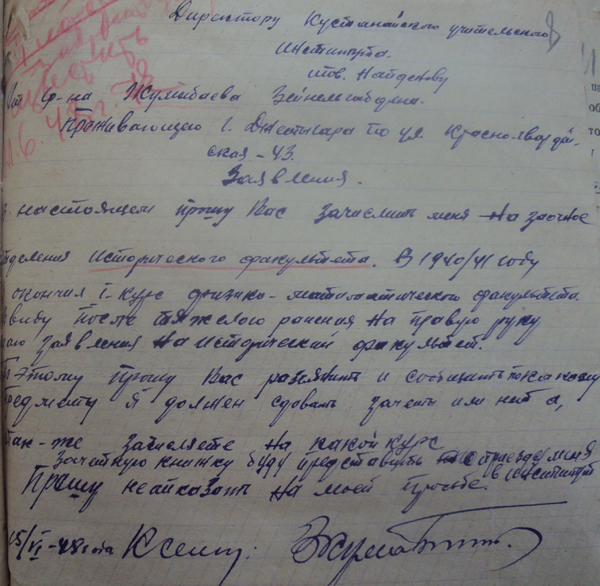 Директору Кустанайского учительского
Института.
тов. Найденову
от гр-на Жумабаева Зейнелгабдена.
Проживающего г. Джетыгара по ул. Красногвардей-
ская - 43.
Заявления.
настоящем прошу Вас зачислить меня на заочное
отделения Исторического факультета. В 1940/41 году
окончил I-курс физико-математического факультета.
ввиду после тяжелого ранения на правую руку
заявления на исторический факультет.
Поэтому прошу Вас разъяснить и сообщить по какому
предмету я должен сдовать зачеты или нет а,
так-же зачисляете на какой курс.
Зачетную книжку буду представить с приездом меня
в институт
Прошу не отказать на моей просьбе.
15/VI-48 года К сему: